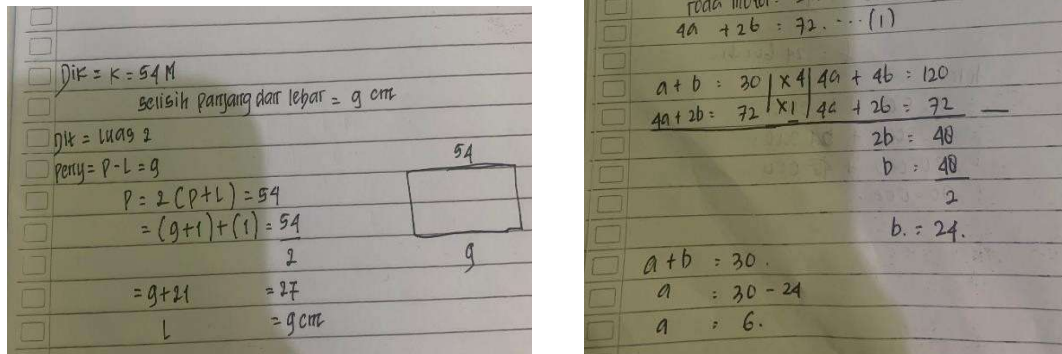 Dik = K = 54 M
selisih panjang dan lebar = 9 cm
Dit = Luas 2
Peny = P - L = 9
P = 2 (P+L) = 54
= (9+1) + (1) = 54
2
= 9+21 = 27
L = 9 cm
54
9
roda motor
4a + 2b = 72 ... (1)
a + b = 30 | x 4 | 4a + 4b = 120
4a + 2b = 72 | x 1 | 4a + 2b = 72 —
2b = 48
b = 48
2
b. = 24.
a + b = 30.
a = 30 - 24
a = 6.